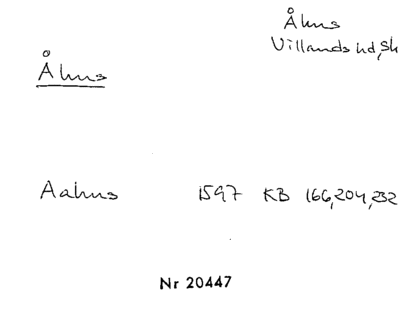 Åhus
Villands hd, Sk
Åhus
Aahus 1597 KB 166, 204, 232
Nr 20447